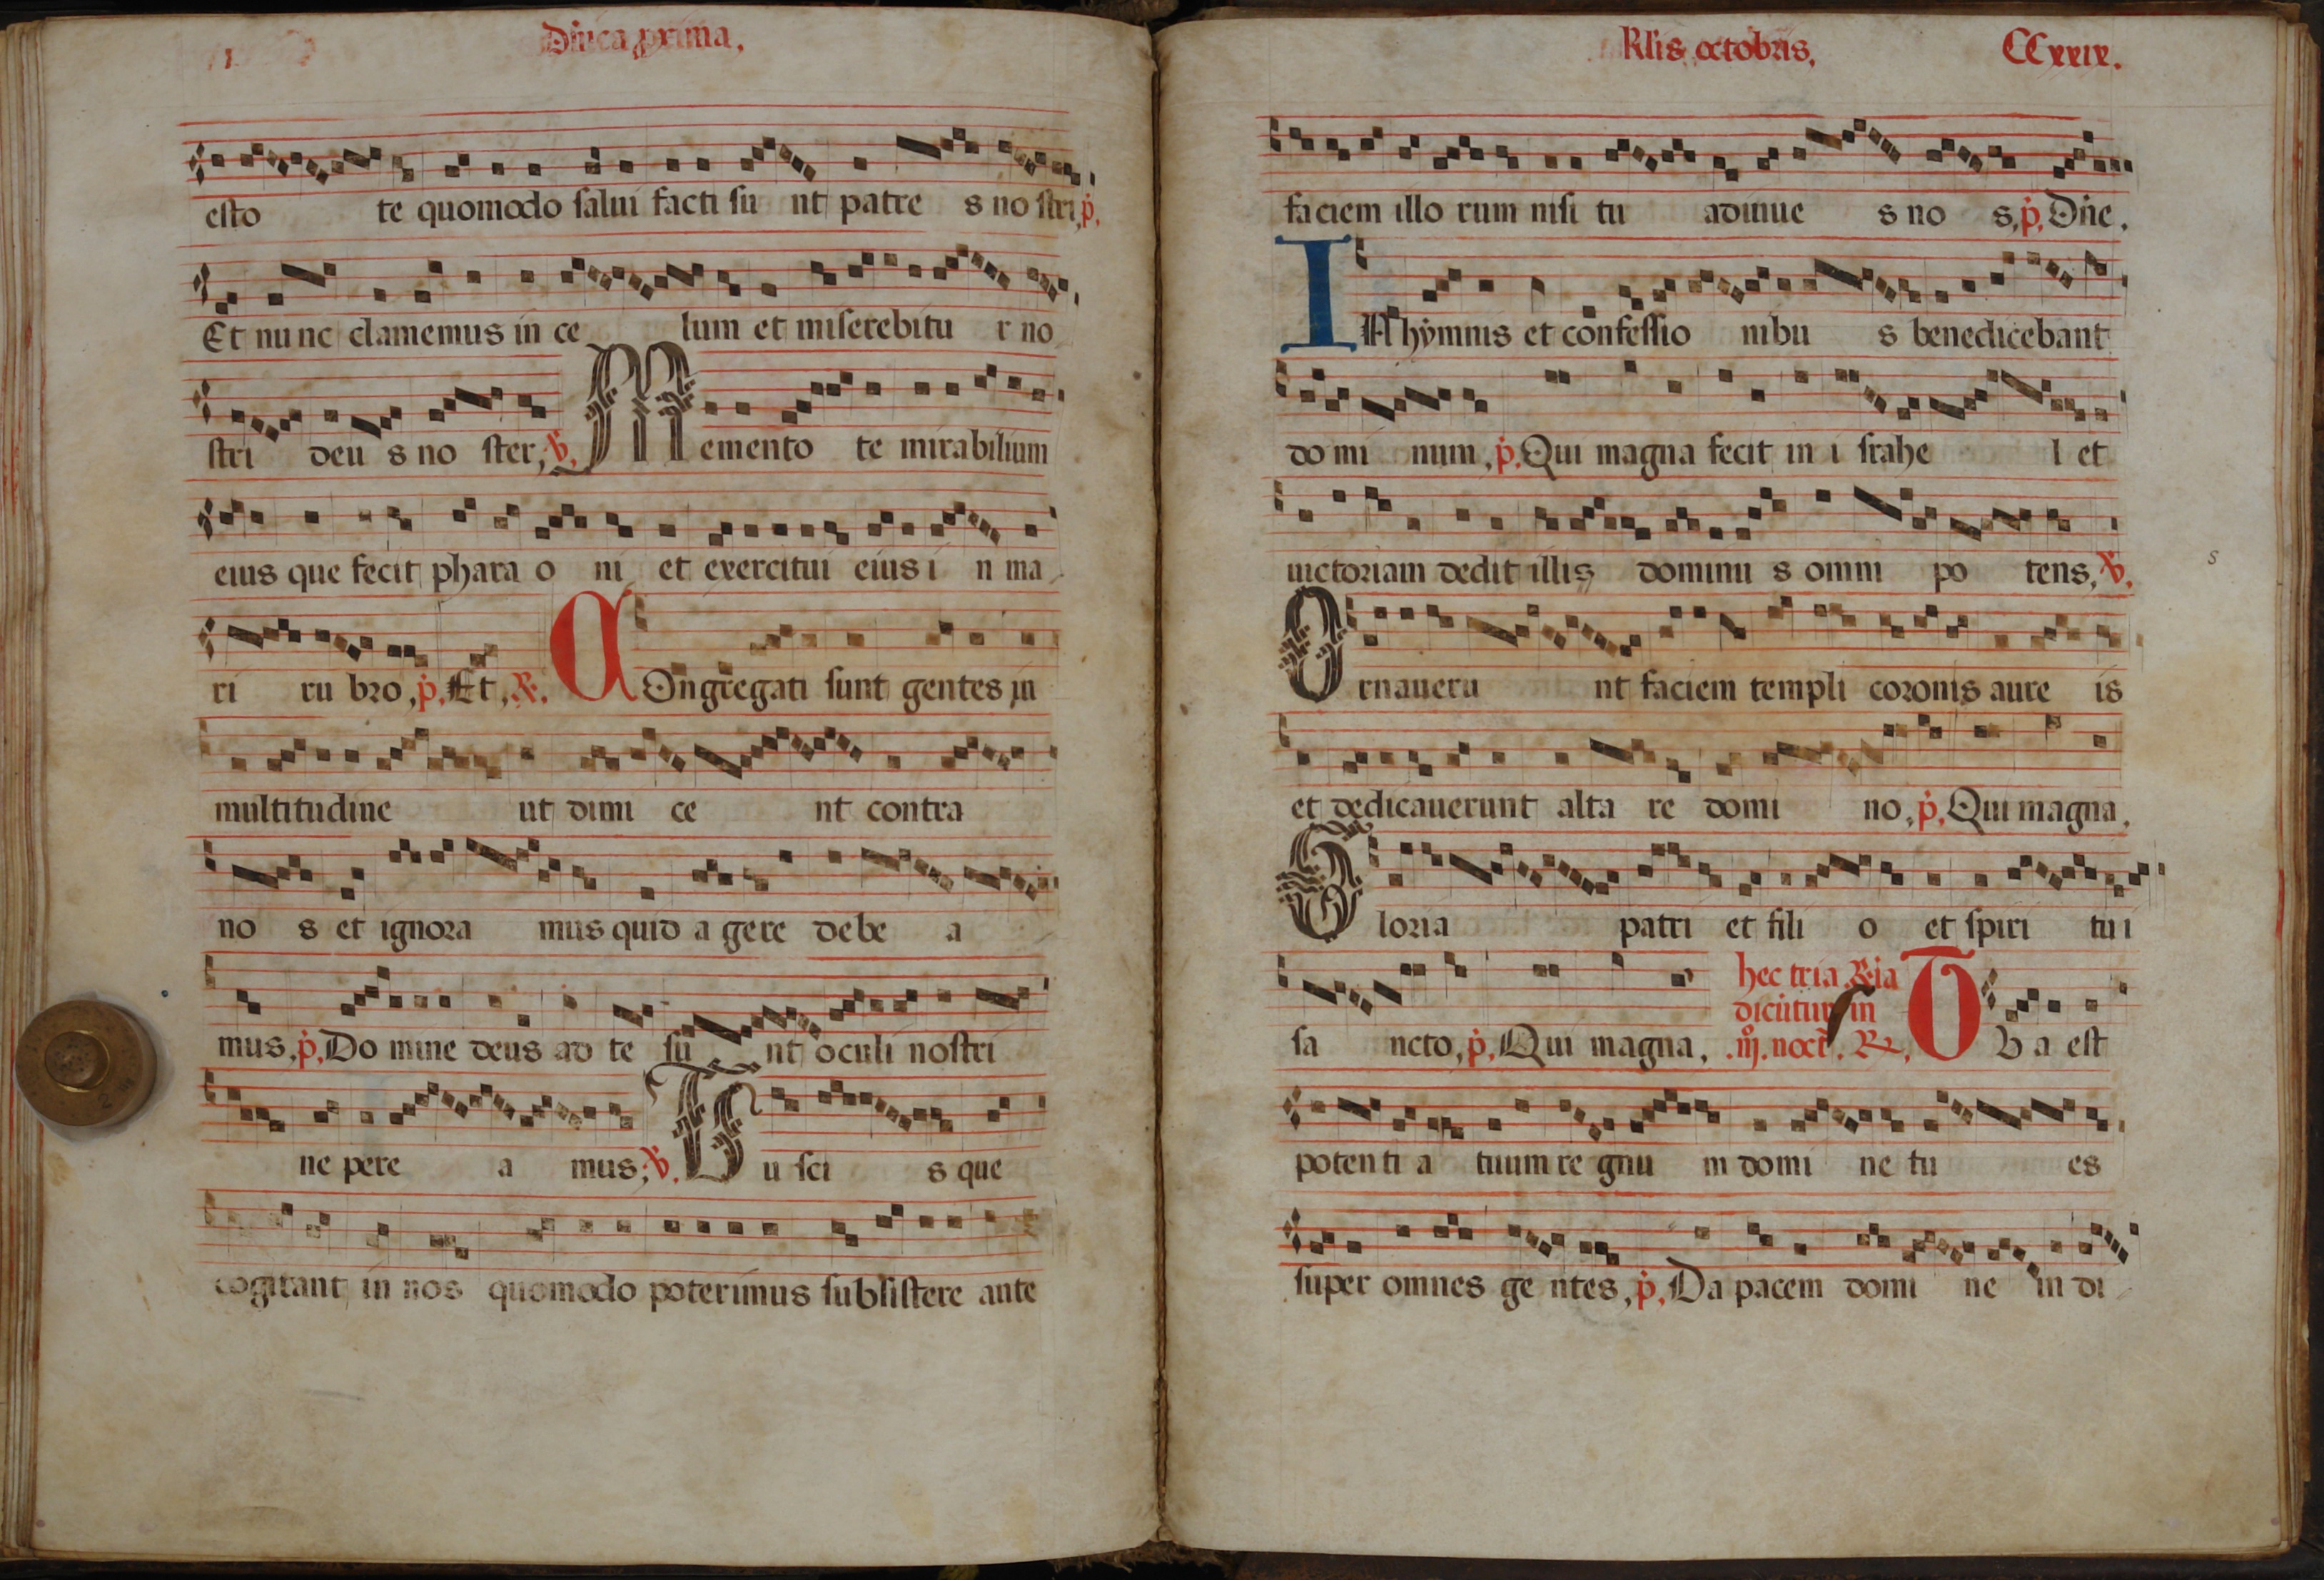 Dn̄ica prima.
esto te quomodo salui facti su nt patre s no stri, p̄.
Et nu nc clamemus in ce lum et miserebitu r no
stri deu s no ster, v̄. Memento te mirabilium
eius que fecit phara o ni et exercitui eius i n ma
ri ru bro, p̄. Et, ℟. COngregati sunt gentes in
multitudine ut dimi ce nt contra
no s et ignora mus quid a gere debe a
mus, p̄. Do mine deus ad te su nt oculi nostri
ne pere a mus; v̄. Tu sci s que
cogitant in nos quomodo poterimus subsistere ante
Klis octobris, CCxxix.
faciem illo rum nisi tu adiuue s no s, p̄. Dn̄e,
IN hymnis et confessio nibu s benedicebant
do mi num, p̄. Qui magna fecit in i srahe l et
uictoriam dedit illis dominu s omni po tens, v̄.
Ornaueru nt faciem templi coronis aure is
et dedicauerunt alta re domi no, p̄. Qui magna,
Gloria patri et fili o et spiri tu i
sa ncto, p̄. Qui magna,
hec tria ℟ia
dicūtur in
.iij. noct̄. ℟, Tu a est
potenti a tuum re gnu m domi ne tu es
super omnes ge ntes, p̄. Da pacem domi ne in di